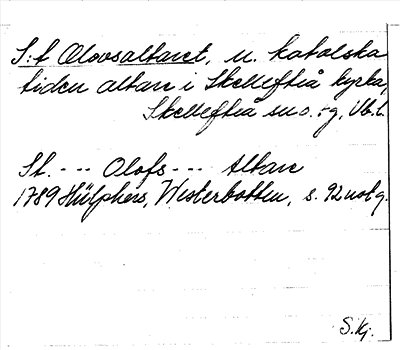 S:t Olovsaltaret, u. katolska
tiden altare i Skellefteå kyrka,
Skellefteå sn o. sg, Vb.l.
St. --- Olofs --- Altare
1789 Hülphers, Westerbotten, s. 92 not g.
S.Kj.